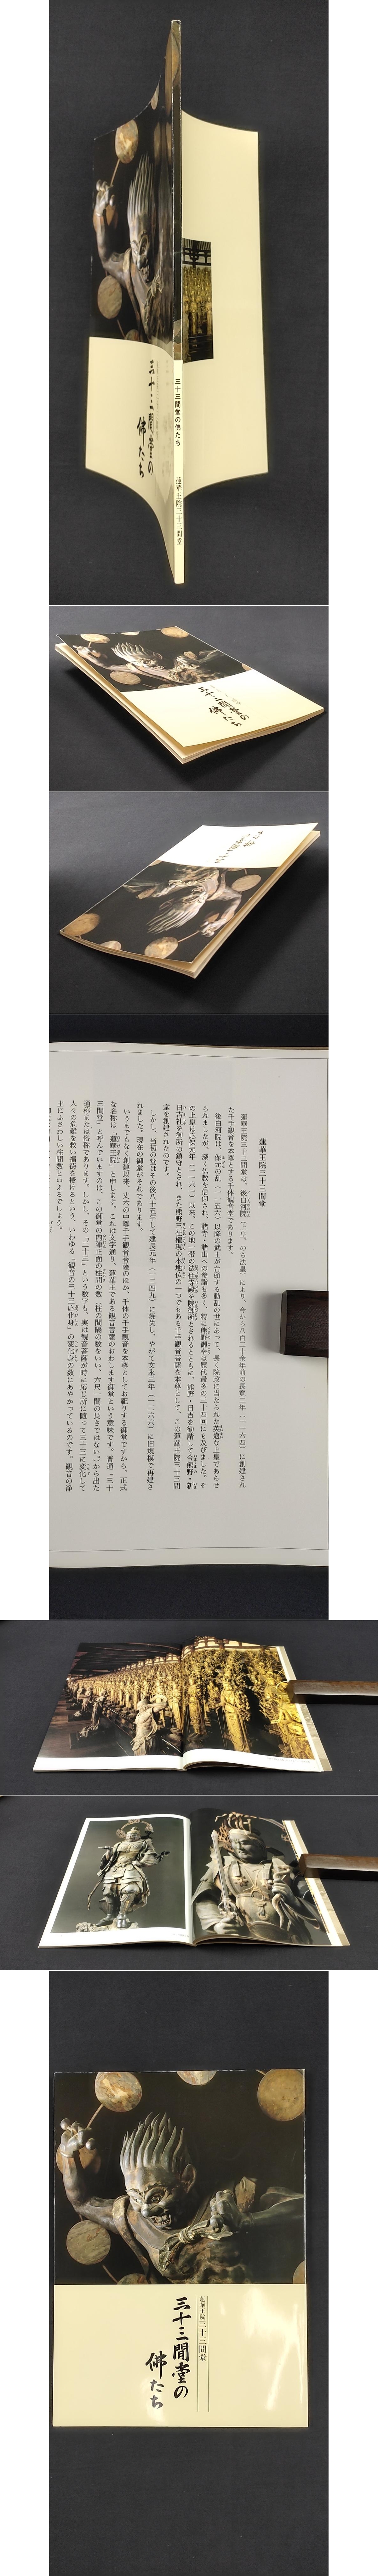 三十三間堂の佛たち
蓮華王院三十三間堂
三十三間堂の
佛たち
三十三間堂の
佛たち
蓮華王院三十三間堂
蓮華王院三十三間堂は、後白河院（上皇、のち法皇）により、今から八百二十余年前の長寛二年（一一六四）に創建され
た千手観音を本尊とする千体観音堂であります。
後白河院は、保元の乱（一一五六）以降の武士が台頭する動乱の世にあって、長く院政に当たられた英邁な上皇であらせ
られましたが、深く仏教を信仰され、諸寺・諸山への参詣も多く、特に熊野御幸は歴代最多の三十四回にも及びました。そ
の上皇は応保元年（一一六一）以来、この地一帯の法住寺殿を院御所とされるとともに、熊野・日吉を勧請して今熊野・新
日吉社を御所の鎮守とされ、また熊野三社権現の本地仏の一つでもある千手観音菩薩を本尊として、この蓮華王院三十三間
堂を創建されたのです。
しかし、当初の堂はその後八十五年して建長元年（一二四九）に焼失し、やがて文永三年（一二六六）に旧規模で再建さ
れました。現在の御堂がそれであります。
いうまでもなく創建以来、丈六の中尊千手観音菩薩のほか、千体の千手観音を本尊としてお祀りする御堂ですから、正式
な名称は「蓮華王院」と申します。これは文字通り、蓮華王である観音菩薩のおわします御堂という意味です。普通「三十
三間堂」と呼んでいますのは、この御堂の内陣正面の柱間の数（柱の間隔の数をいい、六尺一間の長さではない。）から出た
通称または俗称であります。しかし、その「三十三」という数字も、実は観音菩薩が時に応じ所に随って三十三に変化して
人々の危難を救い福徳を授けるという、いわゆる「観音の三十三応化身」の変化身の数にあやかっているのです。観音の浄
土にふさわしい柱間数といえるでしょう。
蓮華王院三十三間堂
三十三間堂の
佛たち